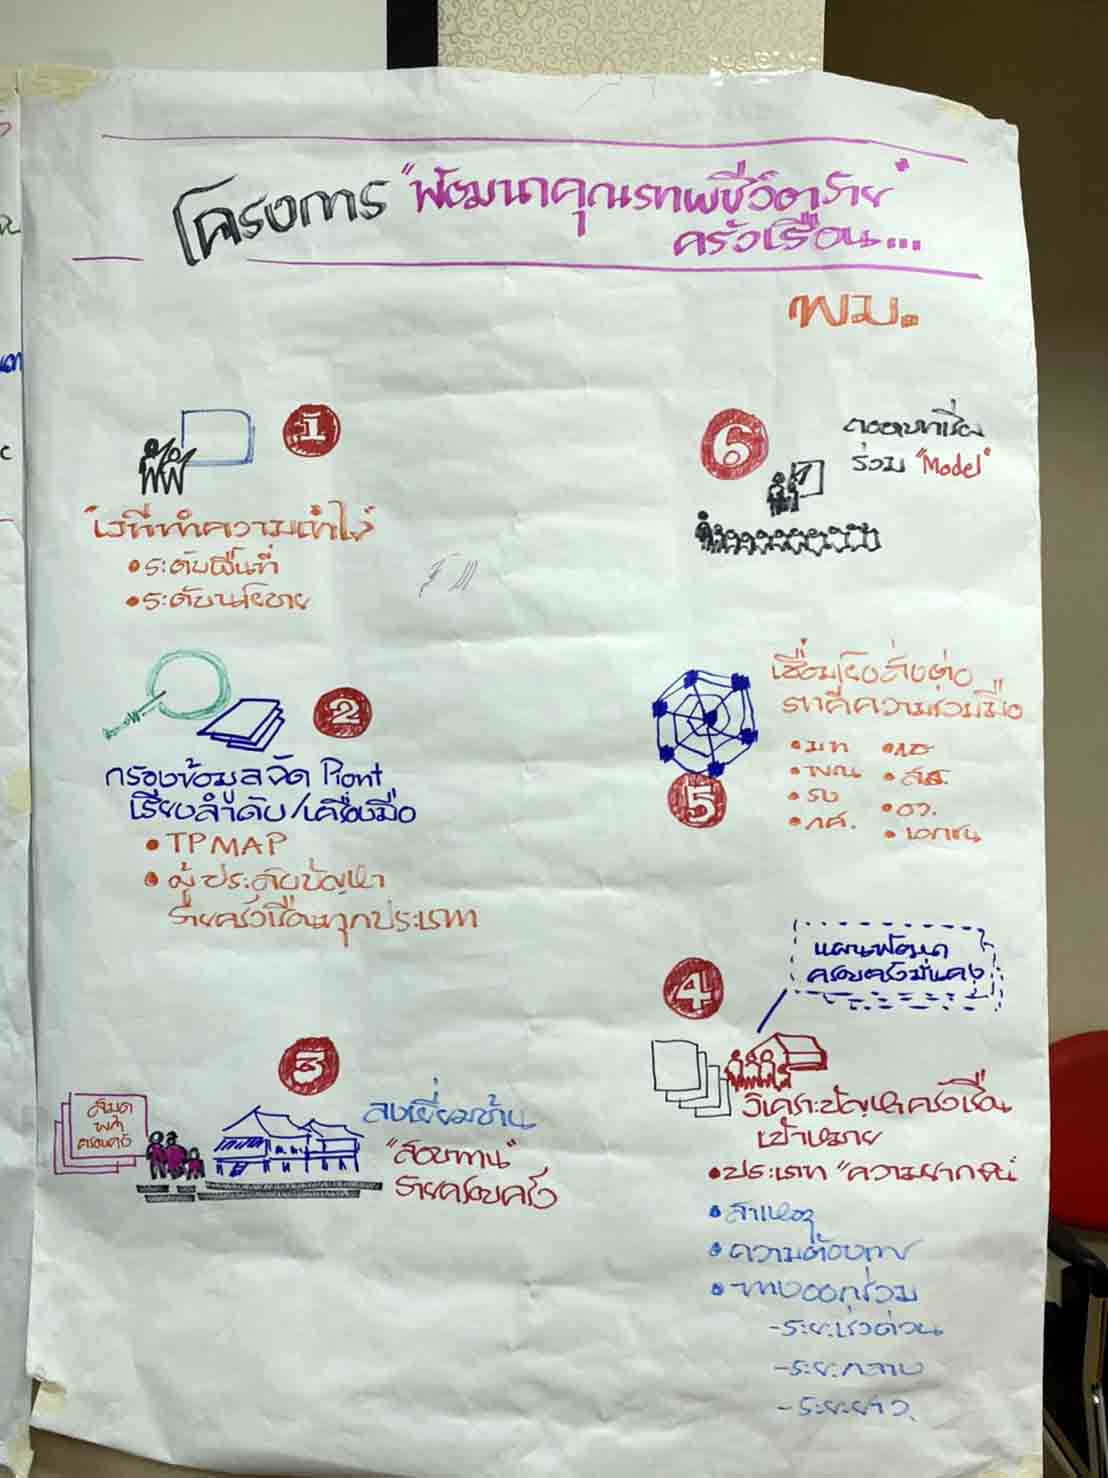 โครงการ "พัฒนาคุณภาพชีวิตราย
ครัวเรือน..."
พม.
1
"เวทีทำความเข้าใจ"
• ระดับพื้นที่
• ระดับนโยบาย
2
กรองข้อมูลจัด Piont
เรียงลำดับ/เครื่องมือ
• TPMAP
• ผู้ประสบปัญหา
รายครัวเรือนทุกประเภท
3
สมุด
พก
ครอบครัว
ลงเยี่ยมบ้าน
"สอบทาน"
รายครอบครัว
4
แผนพัฒนา
ครอบครัวมั่นคง
วิเคราะปัญหาครัวเรือน
เป้าหมาย
• ประเภท "ความยากจน"
• สาเหตุ
• ความต้องการ
• ทางออกร่วม
- ระยะเร่งด่วน
- ระยะกลาง
- ระยะยาว
5
เชื่อมโยงส่งต่อ
ภาคีความร่วมมือ
• มท
• รง
• สธ.
• อว.
• เอกชน
6
ถอดบทเรียน
ร่วม "Model"